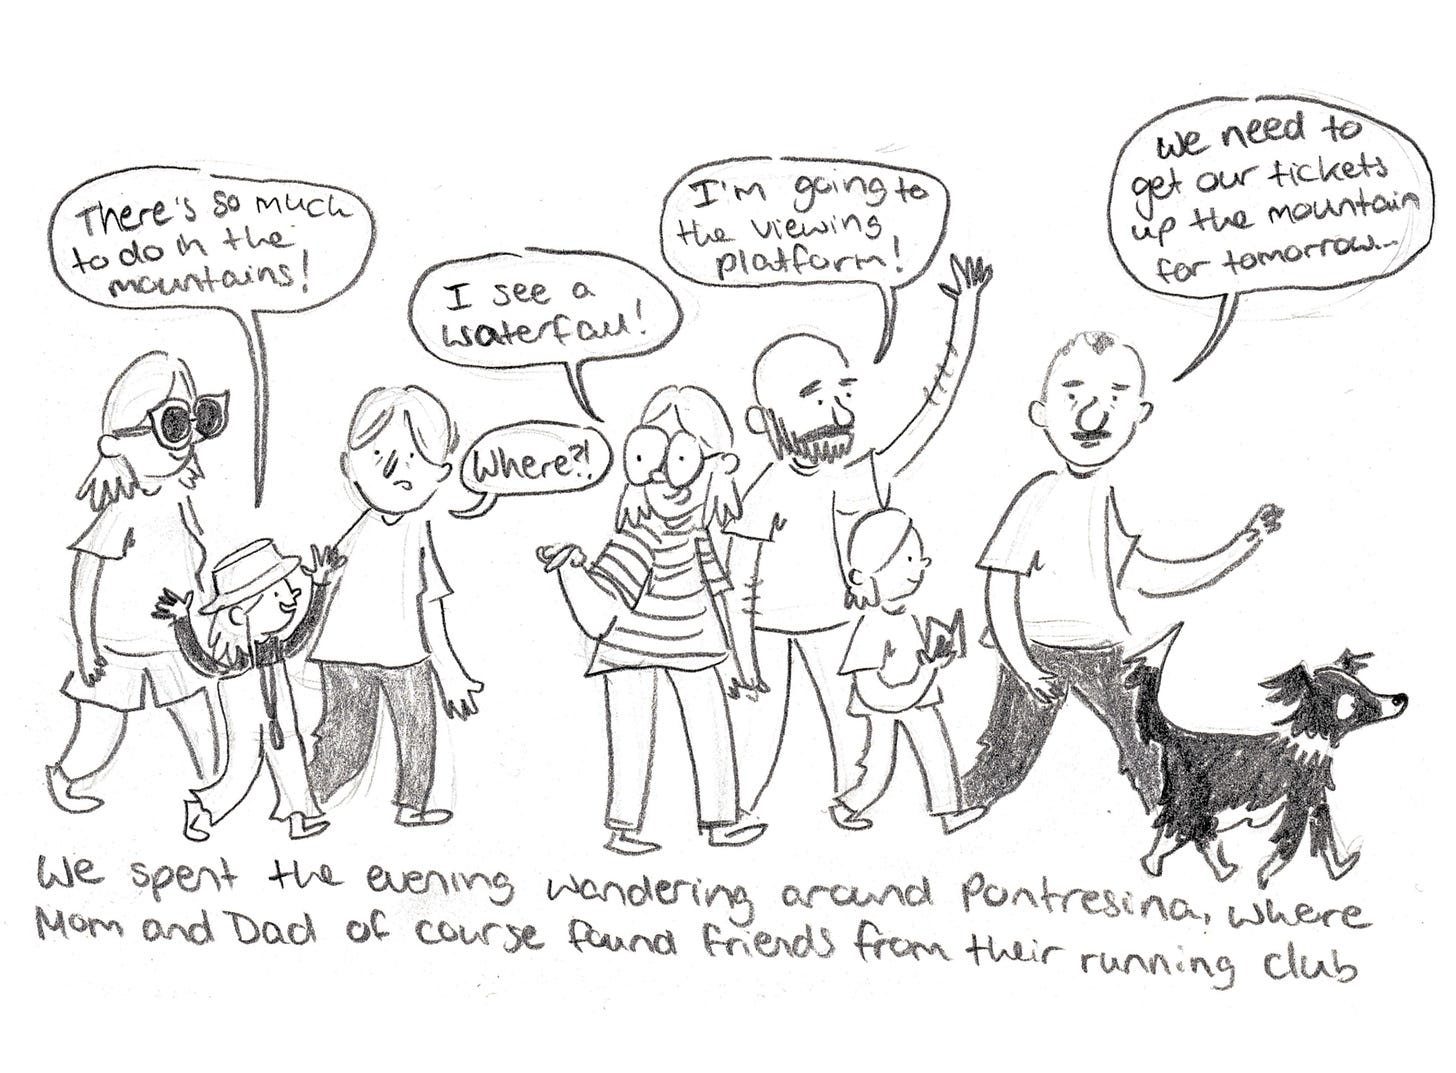 There's so much
to do in the
mountains!
I see a
waterfall!
Where?!
I'm going to
the viewing
platform!
We need to
get our tickets
up the mountain
for tomorrow...
We spent the evening wandering around Pontresina, where
Mom and Dad of course found friends from their running club